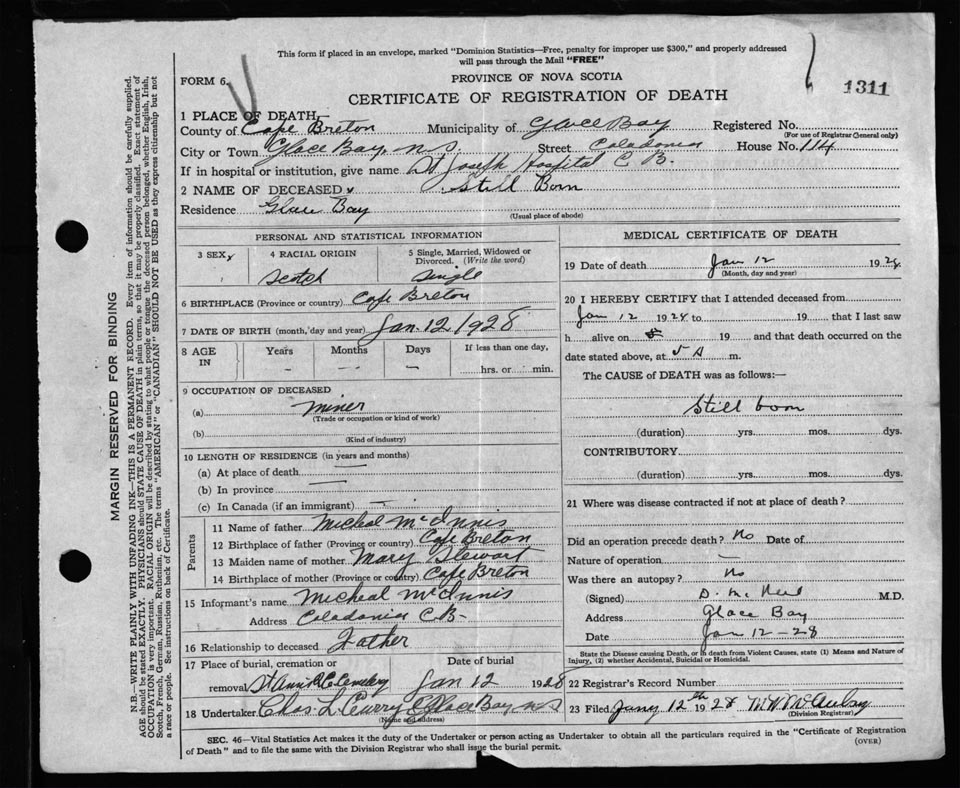 This form if placed in an envelope, marked "Dominion Statistics—Free, penalty for improper use $300," and properly addressed
will pass through the Mail "FREE"
FORM 6.
PROVINCE OF NOVA SCOTIA
1311
CERTIFICATE OF REGISTRATION OF DEATH
1 PLACE OF DEATH,
County of Cape Breton Municipality of Glace Bay Registered No.
(For use of Registrar General only)
City or Town Glace Bay, N.S. Street Caledonia House No. 114
If in hospital or institution, give name St Joseph Hospital C B.
2 NAME OF DECEASED Still Born
Residence Glace Bay
(Usual place of abode)
PERSONAL AND STATISTICAL INFORMATION
3 SEX 4 RACIAL ORIGIN 5 Single, Married, Widowed or
Divorced. (Write the word)
Scotch Single
6 BIRTHPLACE (Province or country) Cape Breton
7 DATE OF BIRTH (month, day and year) Jan. 12/1928
8 AGE IN Years Months Days If less than one day,
hrs. or min.
9 OCCUPATION OF DECEASED
(a) Miner
(Trade or occupation or kind of work)
(b)
(Kind of industry)
10 LENGTH OF RESIDENCE (in years and months)
(a) At place of death
(b) In province
(c) In Canada (if an immigrant)
Parents
11 Name of father Micheal McInnis
12 Birthplace of father (Province or country) Cape Breton
13 Maiden name of mother Mary Stewart
14 Birthplace of mother (Province or country) Cape Breton
15 Informant's name Micheal McInnis
Address Caledonia C.B.
16 Relationship to deceased Father
17 Place of burial, cremation or Date of burial
removal St Anns R C Cemetery Jan 12 1928
18 Undertaker Chas. L. Curry Glace Bay N.S
(Name and address)
MEDICAL CERTIFICATE OF DEATH
19 Date of death Jan 12 1928
(Month, day and year)
20 I HEREBY CERTIFY that I attended deceased from
Jan 12 1928 to 19 that I last saw
h alive on 19 and that death occurred on the
date stated above, at 5 A m.
The CAUSE of DEATH was as follows:—
Still born
(duration) yrs. mos. dys.
CONTRIBUTORY
(duration) yrs. mos. dys.
21 Where was disease contracted if not at place of death?
Did an operation precede death? No Date of
Nature of operation
Was there an autopsy? No
(Signed) D. McNeil M.D.
Address Glace Bay
Date Jan 12-28
State the Disease causing Death, or in death from Violent Causes, state (1) Means and Nature of
Injury, (2) whether Accidental, Suicidal or Homicidal.
22 Registrar's Record Number
23 Filed Jany 12th 1928
(Division Registrar)
SEC. 46—Vital Statistics Act makes it the duty of the Undertaker or person acting as Undertaker to obtain all the particulars required in the "Certificate of Registration
of Death" and to file the same with the Division Registrar who shall issue the burial permit.
(OVER)
MARGIN RESERVED FOR BINDING
N.B.—WRITE PLAINLY WITH UNFADING INK—THIS IS A PERMANENT RECORD. Every item of information should be carefully supplied.
AGE should be stated EXACTLY. PHYSICIANS should STATE CAUSE OF DEATH in plain terms, so that it may be properly classified. Exact statement of
OCCUPATION is very important. RACIAL ORIGIN will be described by stating to what people or tongue the deceased person belonged, whether English, Irish,
Scotch, French, German, Russian, Ruthenian, etc. The terms "AMERICAN" or "CANADIAN" SHOULD NOT BE USED as they express citizenship but not
a race or people. See instructions on back of Certificate.